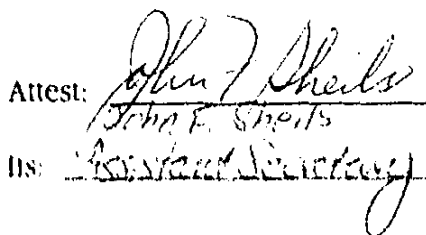 Attest: John F Sheils
John F. Sheils
Its: Assistant Secretary